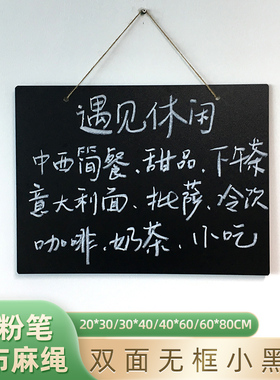 遇见休闲
中西简餐、甜品、下午茶
意大利面、批萨、冷饮
咖啡、奶茶、小吃
粉笔
麻绳
20*30/30*40/40*60/60*80CM
双面无框小黑